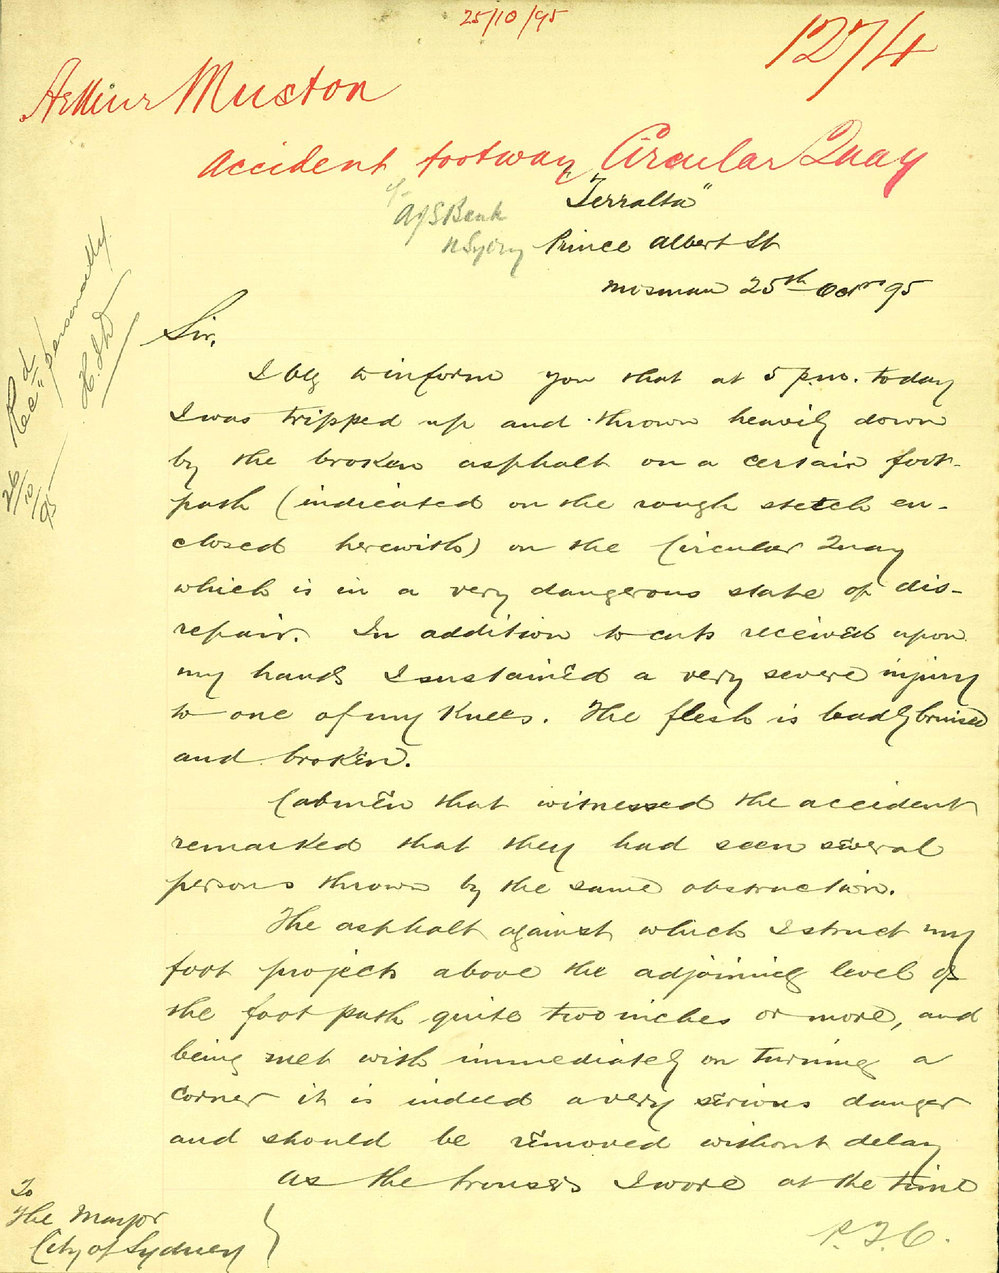 25/10/95
1274
Arthur Muston
Accident footway Circular Quay
c/-
AJS Bank
N Sydney
"Terralta"
Prince Albert St
Mosman 25th Octr 95
Recd personally
26/10/95
Sir,
I beg to inform you that at 5 p.m. today
I was tripped up and thrown heavily down
by the broken asphalt on a certain foot-
path (indicated on the rough sketch en-
closed herewith) on the Circular Quay
which is in a very dangerous state of dis-
repair. In addition to cuts received upon
my hands I sustained a very severe injury
to one of my knees. The flesh is badly bruised
and broken.
Cabmen that witnessed the accident
remarked that they had seen several
persons thrown by the same obstruction.
The asphalt against which I struck my
foot projects above the adjoining level of
the foot path quite two inches or more, and
being met with immediately on turning a
corner it is indeed a very serious danger
and should be removed without delay
As the trousers I wore at the time
To
The Mayor
City of Sydney
P.T.O.